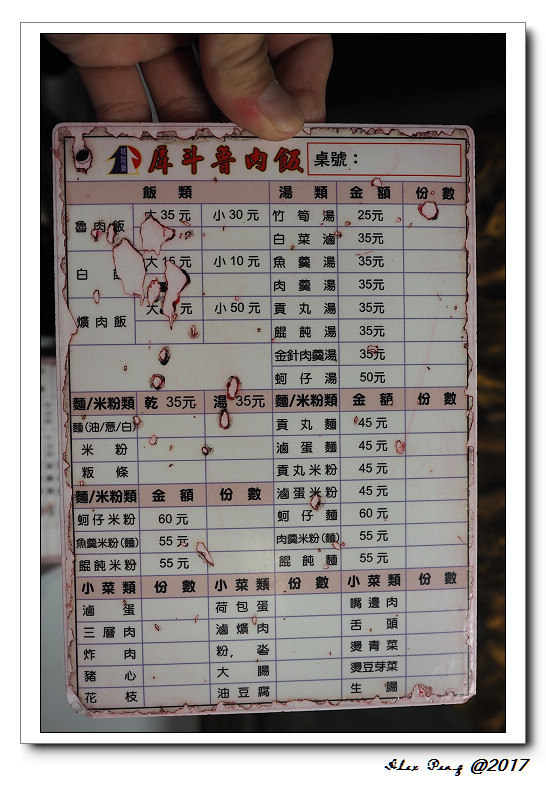 犀斗魯肉飯 桌號：
飯類 湯類 金額 份數
魯肉飯 大35元 小30元 竹筍湯 25元
白菜滷 35元
白 大15元 小10元 魚羹湯 35元
肉羹湯 35元
爌肉飯 大 元 小50元 貢丸湯 35元
餛飩湯 35元
金針肉羹湯 35元
蚵仔湯 50元
麵/米粉類 乾 35元 湯 35元 麵/米粉類 金額 份數
麵(油/意/白) 貢丸麵 45元
米粉 滷蛋麵 45元
粄條 貢丸米粉 45元
麵/米粉類 金額 份數 滷蛋米粉 45元
蚵仔米粉 60元 蚵仔麵 60元
魚羹米粉(麵) 55元 肉羹米粉(麵) 55元
餛飩米粉 55元 餛飩麵 55元
小菜類 份數 小菜類 份數 小菜類 份數
滷蛋 荷包蛋 嘴邊肉
三層肉 滷爌肉 舌頭
炸肉 粉 燙青菜
豬心 大腸 燙豆芽菜
花枝 油豆腐 生腸
Alex Peng @2017